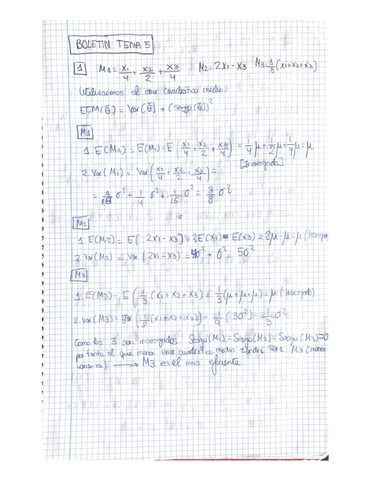 BOLETIN TEMA 5
1 M1 = x1/4 + x2/2 + x3/4 M2 = 2x1 - x3 M3 = 1/3 (x1+x2+x3)
Utilizamos el error cuadratico medio
ECM(θ̂) = Var(θ̂) + (sesgo(θ̂))²
M1
1. E(M1) = E(M1) = E(x1/4 + x2/2 + x3/4) = 1/4 μ + 1/2 μ + 1/4 μ = μ
[Insesgado]
2. Var(M1) = Var(x1/4 + x2/2 + x3/4) =
= 1/16 σ² + 1/4 σ² + 1/16 σ² = 3/8 σ²
M2
1. E(M2) = E(2x1 - x3) = 2E(x1) - E(x3) = 2μ - μ = μ
2. Var(M2) = Var(2x1 - x3) = 4σ² + σ² = 5σ²
M3
1. E(M3) = E(1/3 (x1+x2+x3)) = 1/3 (μ+μ+μ) = μ (insesgado)
2. Var(M3) = Var(1/3 (x1+x2+x3)) = 1/9 (3σ²) = 1/3 σ²
Como los 3 son insesgados Sesgo(M1) = Sesgo(M2) = Sesgo(M3) = 0
por tanto el que menor error cuadratico medio M3 (menor
varianza) → M3 es el mas eficiente